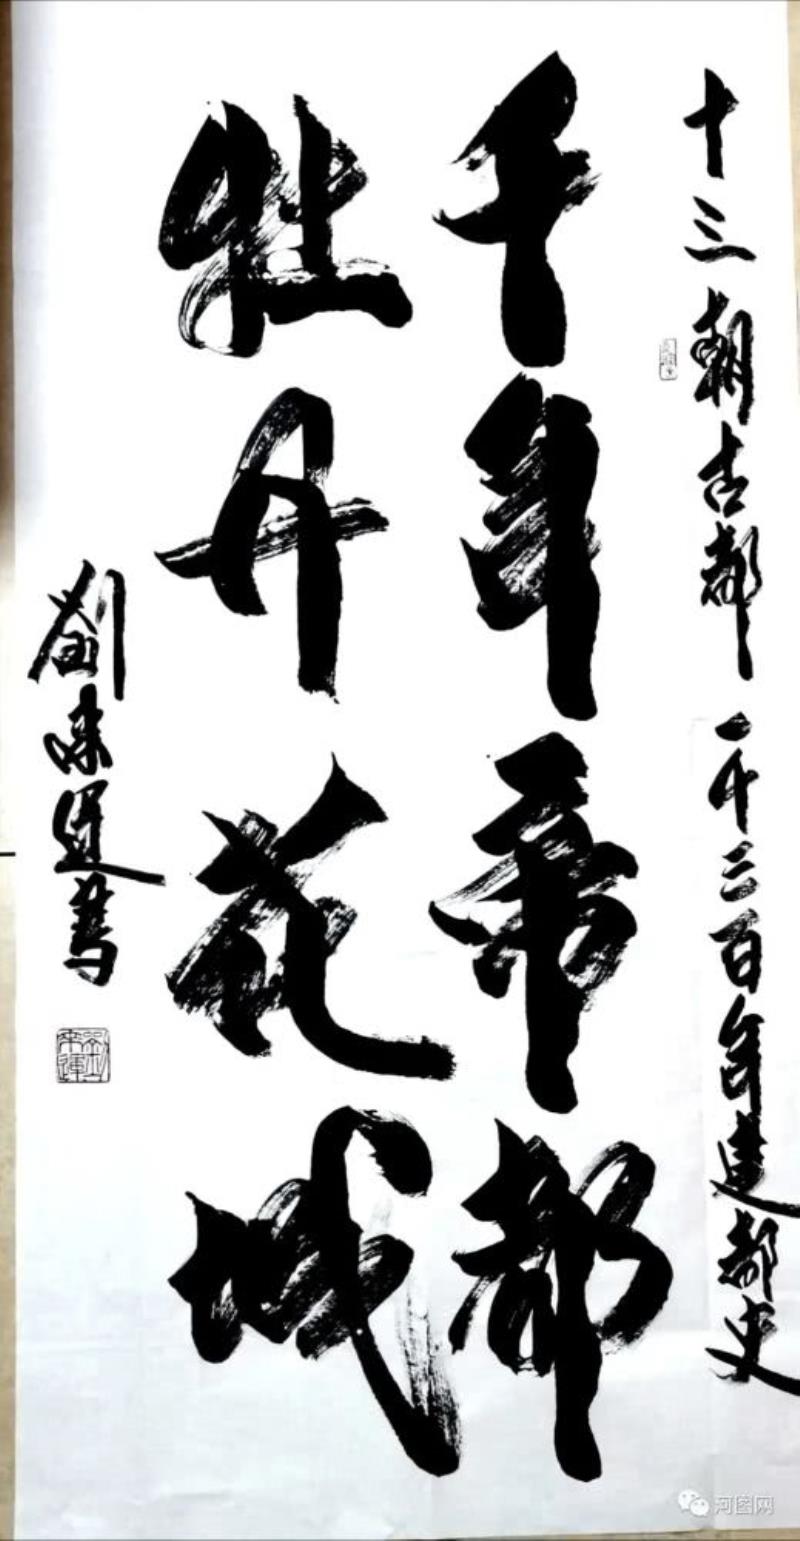 十三朝古都 一千三百年建都史
千年帝都
牡丹花城
劉來運書
劉來運
河图网